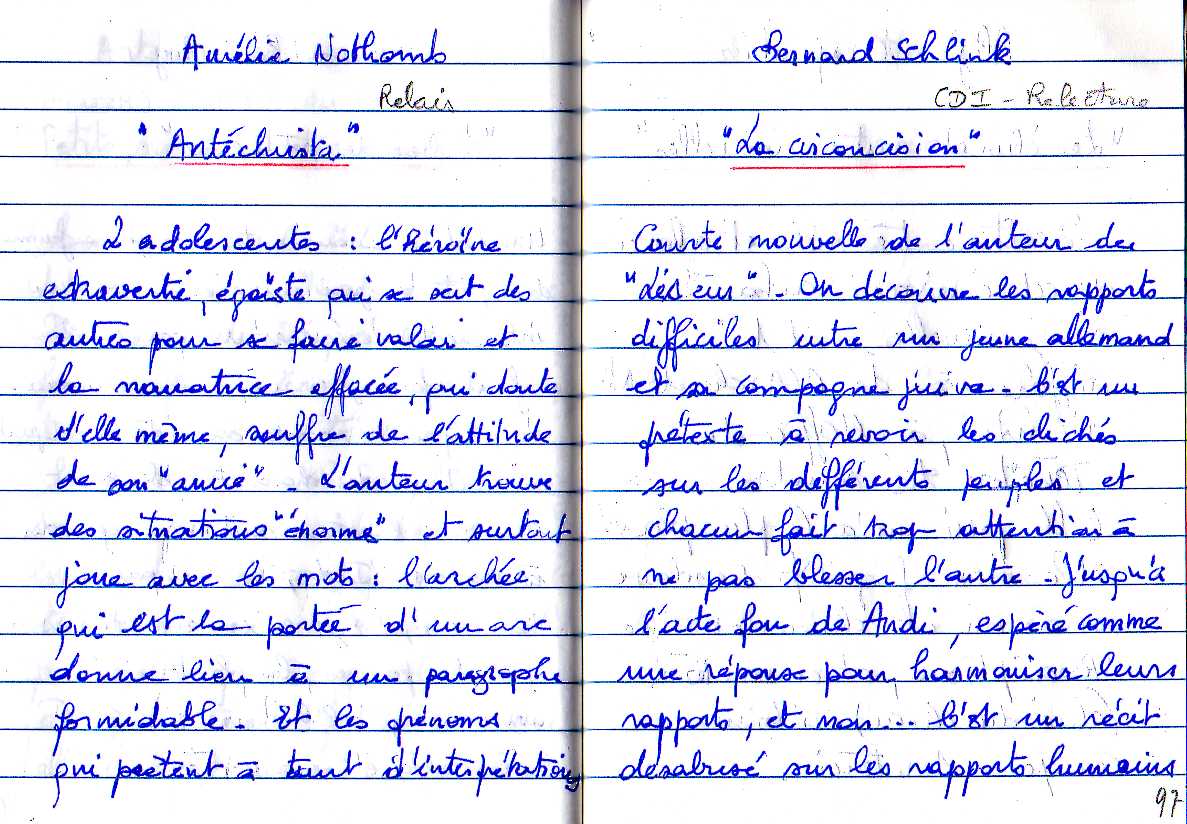 Aurélie Nothomb
Relais
"Antéchrista"
2 adolescentes : l'héroïne
extravertie, égoïste qui se sert des
autres pour se faire valoir et
la narratrice effacée, qui doute
d'elle même, souffre de l'attitude
de son "amie". L'auteur trouve
des situations "énorme" et surtout
joue avec les mots : l'archée
qui est la portée d'un arc
donne lieu à un paragraphe
formidable. Et les prénoms
qui prêtent à tant d'interprétations
Bernard Schlink
CDI - Relecture
"La circoncision"
Courte nouvelle de l'auteur de
"Liseur". On découvre les rapports
difficiles entre un jeune allemand
et sa compagne juive. C'est un
prétexte à revoir les clichés
sur les différents peuples et
chacun fait trop attention à
ne pas blesser l'autre. Jusqu'à
l'acte fou de Andi, espéré comme
une réponse pour harmoniser leurs
rapports, et non... C'est un récit
désabusé sur les rapports humains
97